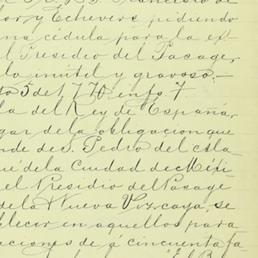 lor, y Echevers pidiendo
una cédula para la ex
l Presidio del Pasage,
lo inútil y gravoso.—
to 5 del 770 en fs 7
la del Rey de España,
gar de la obligacion que
nde de S. Pedro del Ala
ué de la Ciudad de Méxi
el Presidio del Pasage
de la Nueva Vizcaya, se
blecer en aquellos para
aciones de á cincuenta fa